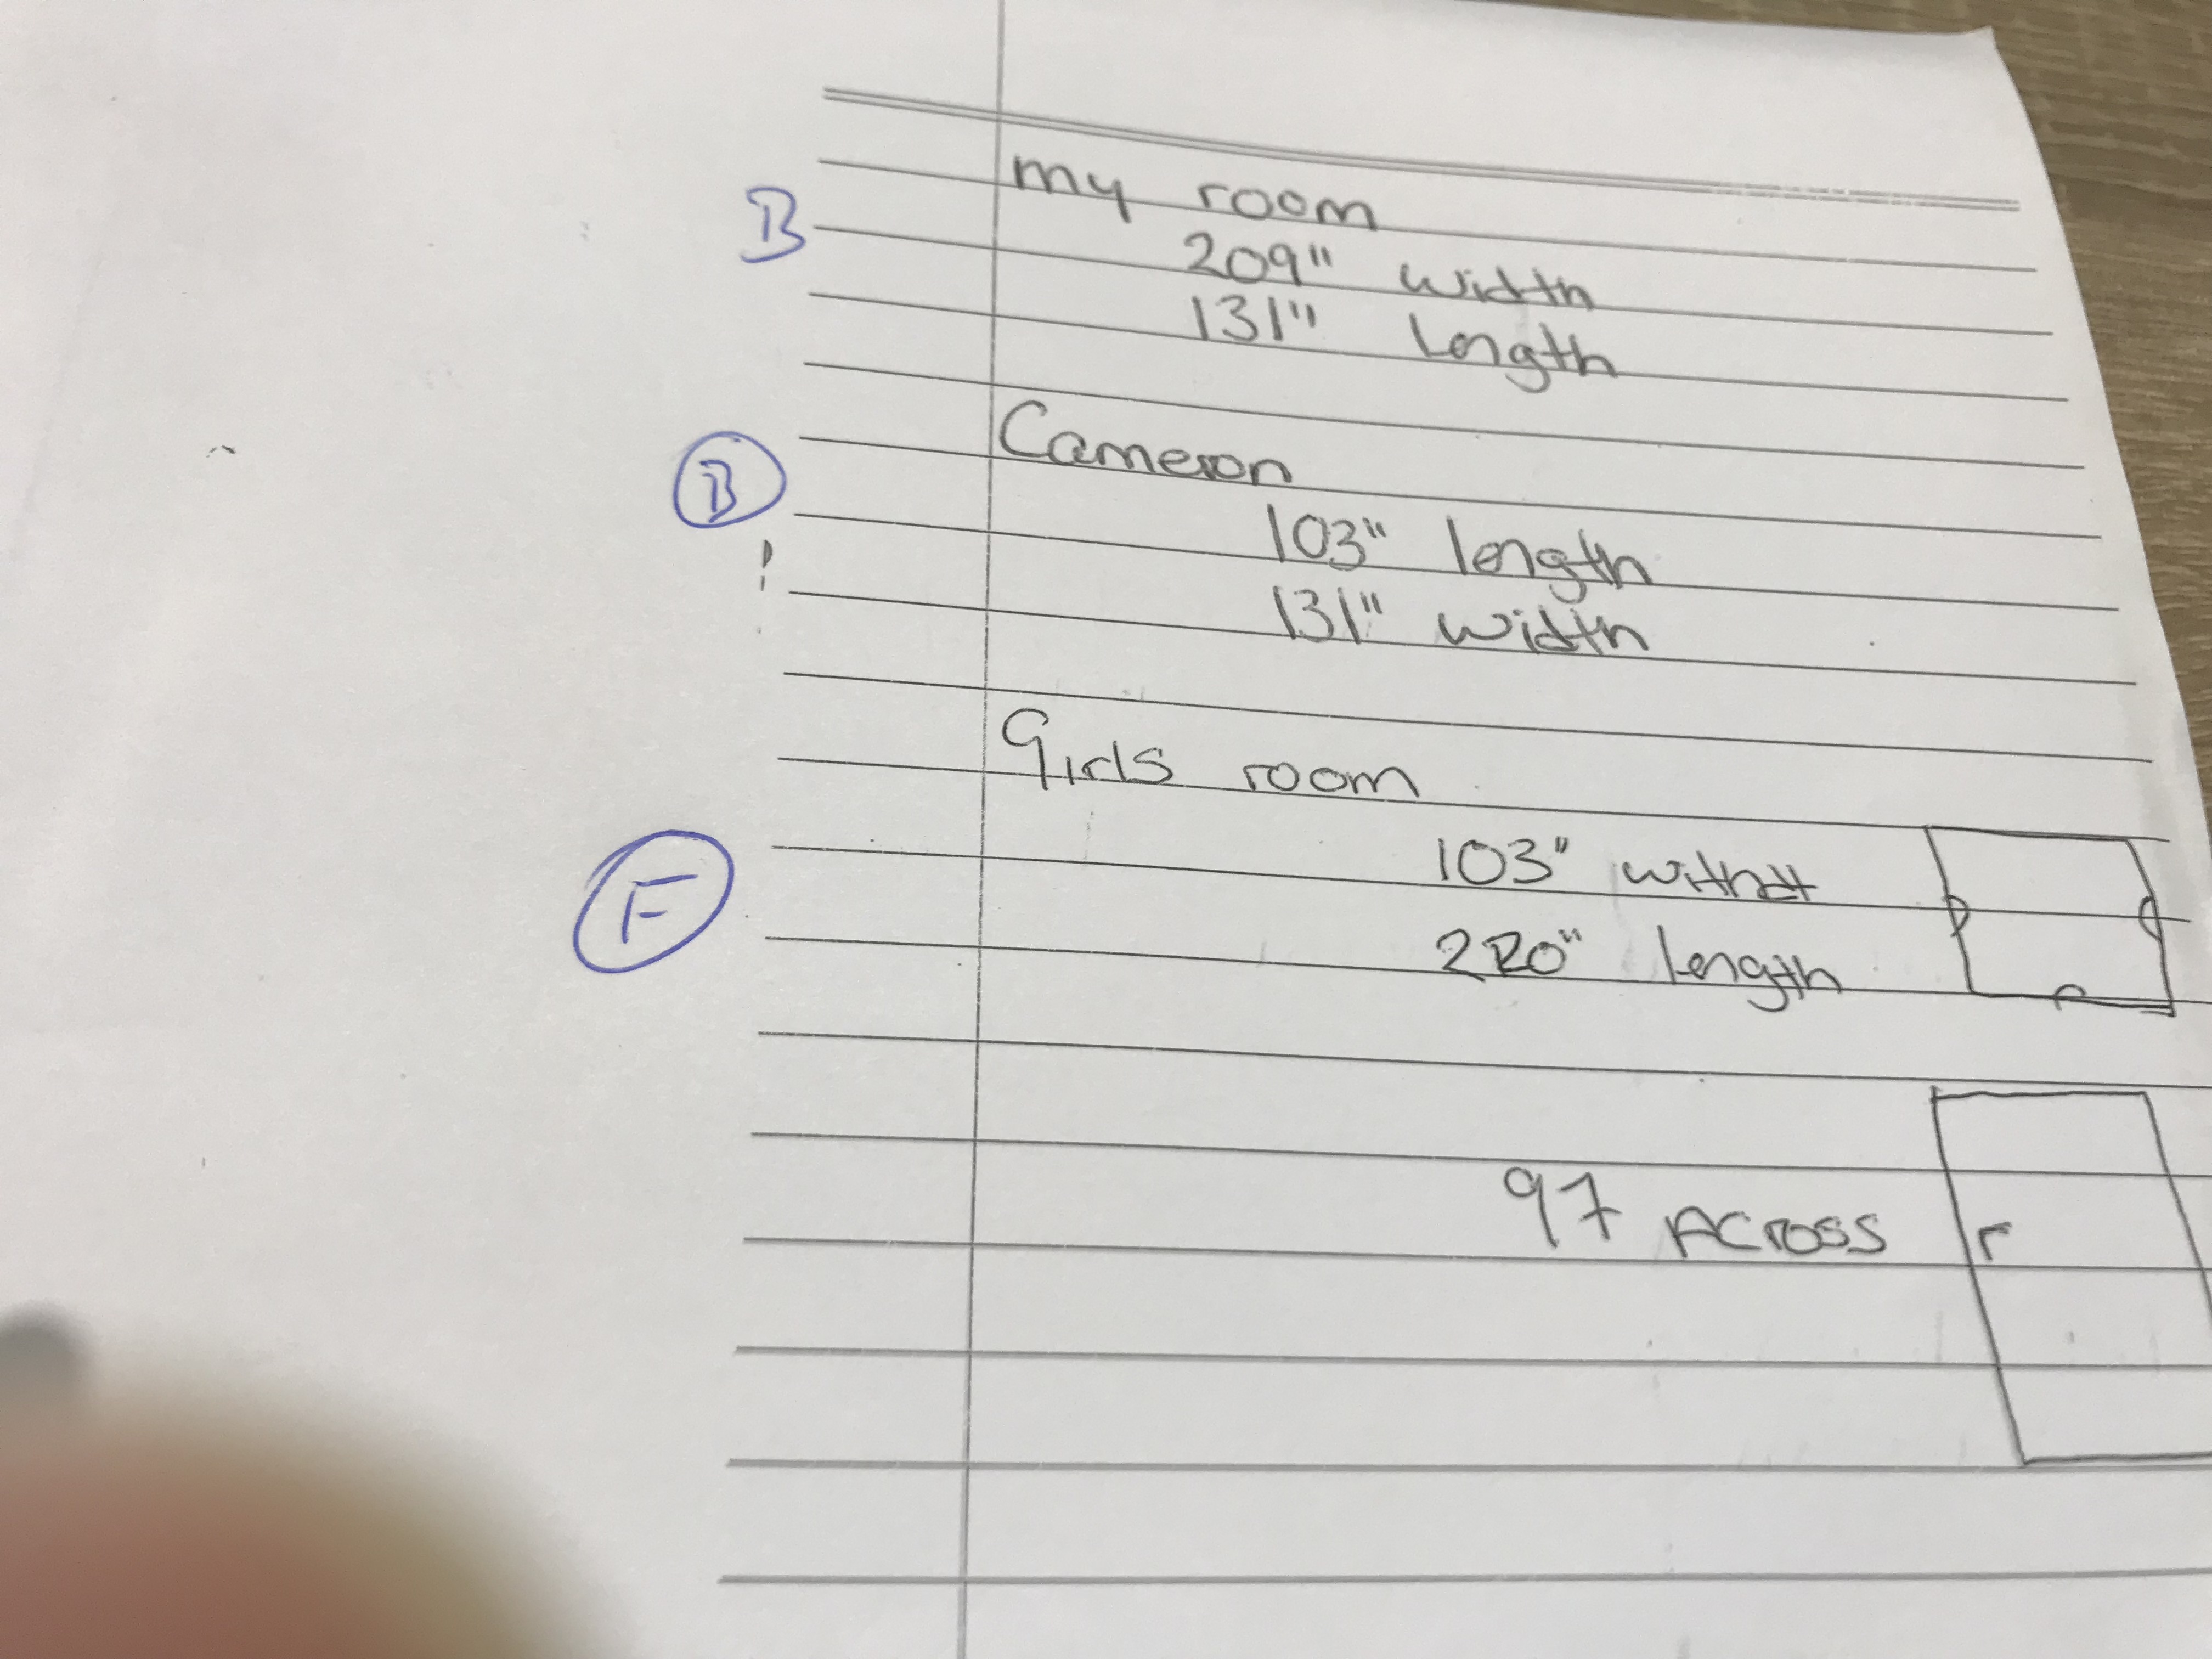 B
my room
209" width
131" length
B
Cameron
103" length
131" width
Girls room
F
103"
220" length
97 Across